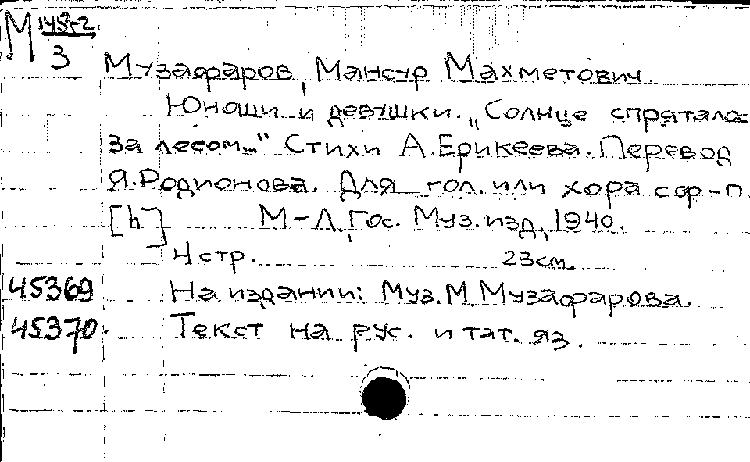 М 148-2
3
Музафаров, Мансур Махметович.
Юноши и девушки. „Солнце спряталось
за лесом..." Стихи А. Ерикеева. Перевод
Я. Родионова. Для гол. или хора с ф-п.
[h] М-Л, Гос. Муз. изд, 1940.
4 стр. 23см.
45369 На издании: Муз. М Музафарова.
45370. Текст на рус. и тат. яз.